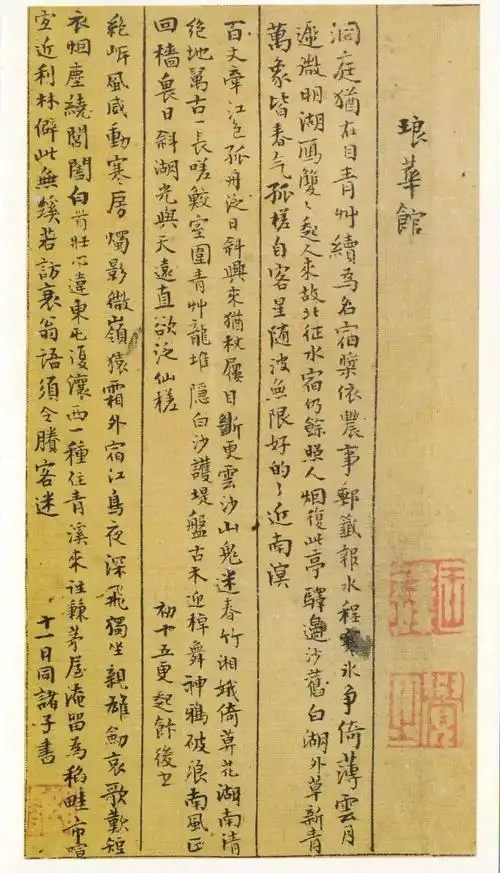 琅華館
洞庭猶在目青艸續為名宿槳依農事郵籤報水程寒氷争倚薄雲月
遞微明湖鴈雙〻起人來故北征水宿仍餘照人烟復此亭驛邊沙舊白湖外草新青
萬象皆春气孤槎自客星随波無限好的〻近南溟
百丈牽江色孤舟泛日斜興來猶杖屨目斷更雲沙山鬼迷春竹湘娥倚莫花湖南清
絶地萬古一長嗟鮫室圍青艸龍堆隱白沙護堤盤古木迎棹舞神鴉破浪南風正
回檣畏日斜湖光與天遠直欲泛仙槎 初十五更起後書
絶岸風威動寒房燭影微嶺猿霜外宿江鳥夜深飛獨坐親雄劍哀歌歎短
衣烟塵繞閶闔白首壮心違東屯復瀼西一種住青溪來往兼茅屋淹留為稻畦市喧
宜近利林僻此無蹊若訪衰翁語須令賸客迷 十一日同諸子書